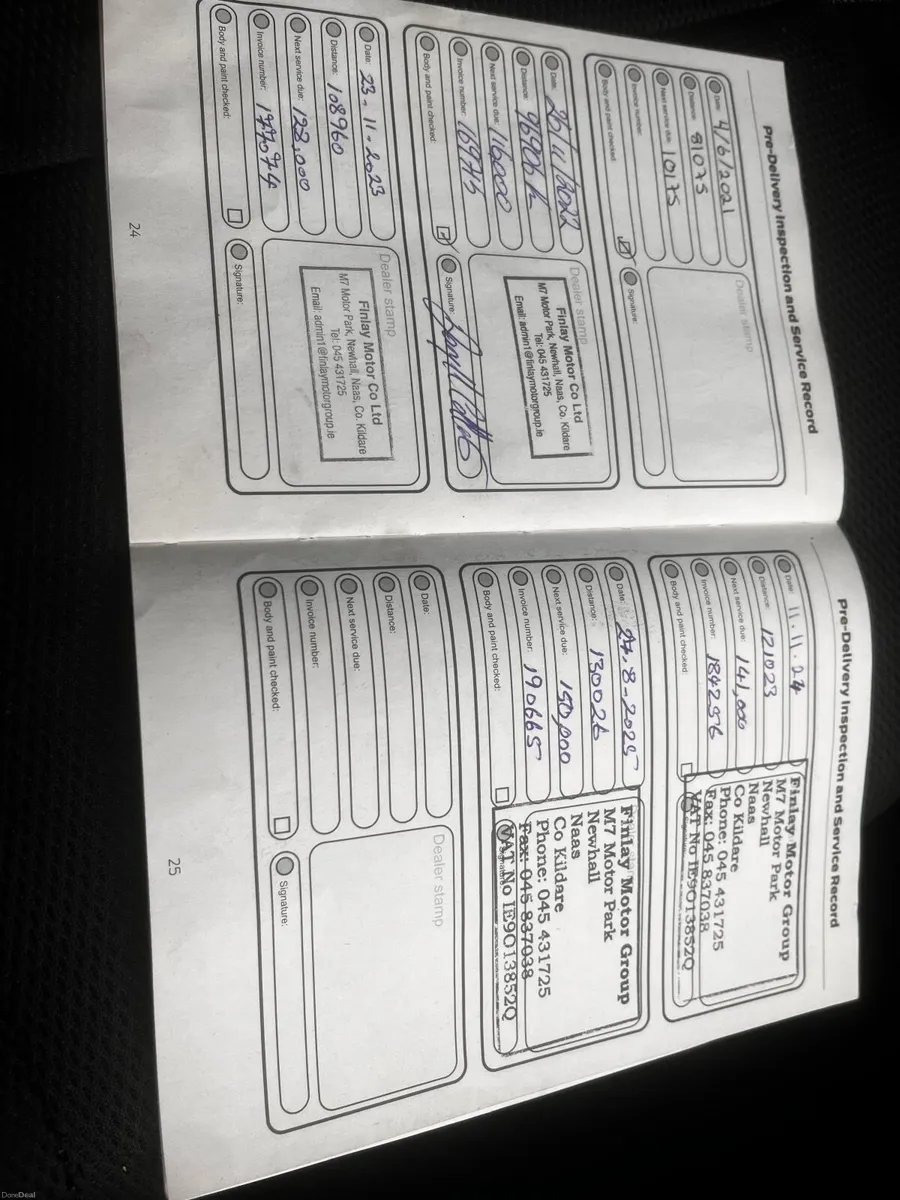 Pre-Delivery Inspection and Service Record
Date: 4/6/2021
Distance: 81075
Next service due: 10175
Invoice number:
Body and paint checked:
Dealer stamp
Signature:
Date: 25/11/2022
Distance: 96906 k
Next service due: 116000
Invoice number:
Body and paint checked:
Dealer stamp
Finlay Motor Co Ltd
M7 Motor Park, Newhall, Naas, Co. Kildare
Tel: 045 431725
Email: admin1@finlaymotorgroup.ie
Signature:
Date: 23-11-2023
Distance: 108960
Next service due: 128,000
Invoice number: 177074
Body and paint checked:
Dealer stamp
Finlay Motor Co Ltd
M7 Motor Park, Newhall, Naas, Co. Kildare
Tel: 045 431725
Email: admin1@finlaymotorgroup.ie
Signature:
24
Pre-Delivery Inspection and Service Record
Date: 11.11.24
Distance: 121023
Next service due: 141,000
Invoice number: 184256
Body and paint checked:
Finlay Motor Group
M7 Motor Park
Newhall
Naas
Co Kildare
Phone: 045 431725
Fax: 045 837038
VAT No IE9O13852Q
Date: 27.8-2025
Distance: 130026
Next service due: 150,000
Invoice number: 190665
Body and paint checked:
Finlay Motor Group
M7 Motor Park
Newhall
Naas
Co Kildare
Phone: 045 431725
Fax: 045 837038
VAT No IE9O13852Q
Date:
Distance:
Next service due:
Invoice number:
Body and paint checked:
Dealer stamp
Signature:
25
DoneDeal